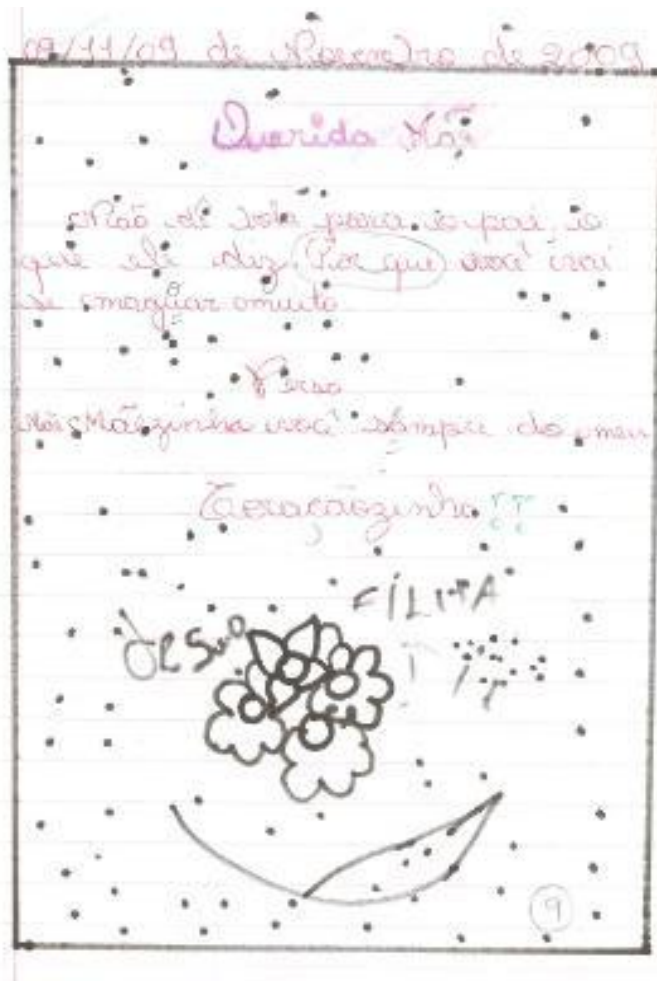 09/11/09 de Novembro de 2009
Querida Mãe
Não dê bola para o pai, o
que ele diz. Por que você vai
se magúar muito
Verso
Mãezinha você sempre do meu
Coraçãozinho !!
9